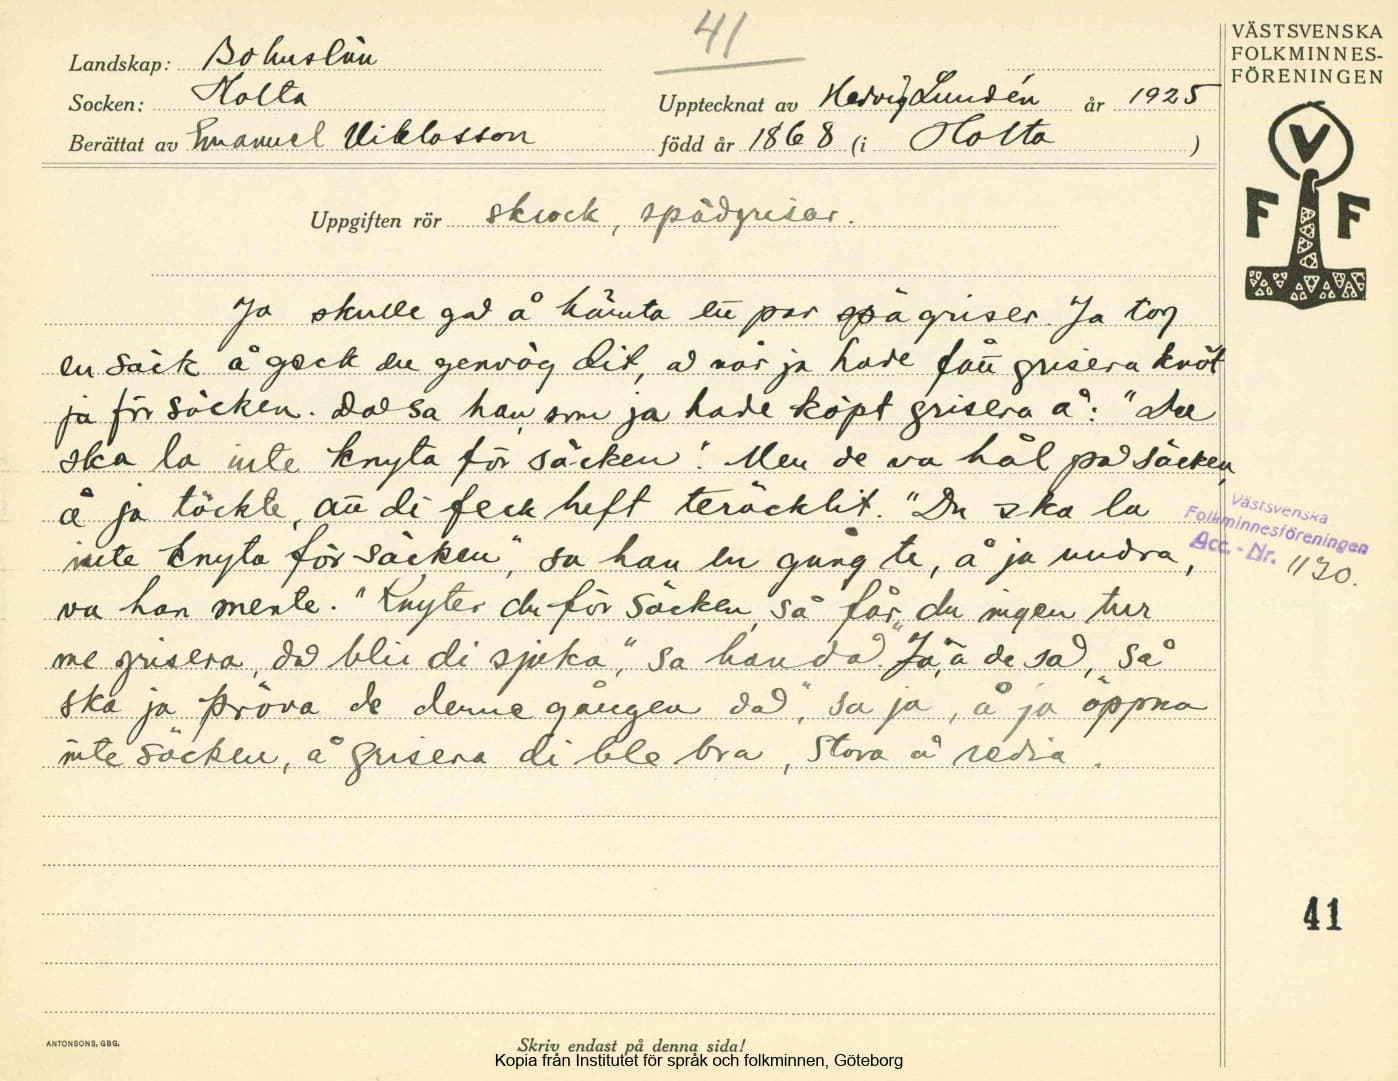 41
VÄSTSVENSKA
FOLKMINNES-
FÖRENINGEN
Landskap: Bohuslän
Socken: Holta
Upptecknat av Hedvig Lundén år 1925
Berättat av Emanuel Niklasson
född år 1868 (i Holta )
V
F F
Uppgiften rör skrock, spädgrisar.
Ja skulle gad å hämta en par spägriser. Ja tog
en säck å geck en genväg dit, ad når ja hade fått grisera knöt
ja för säcken. Dad sa han, som ja hade köpt grisera å: "Du
ska la inte knyta för säcken". Men de va hål pad säcken,
å ja töckte, att di feck luft teräcklit. "Du ska la
inte knyta för säcken", sa han en gång te, å ja undra,
va han mente. "Knyter du för säcken, så får du ingen tur
me grisera, dad blir di sjuka", sa han dad. "Ja, ä de sad, så
ska ja pröva de denne gången dad", sa ja, å ja öppna
inte säcken, å grisera di ble bra, stora å redia.
Västsvenska
Folkminnesföreningen
Acc.-Nr. 1130.
41
ANTONSONS, GBG.
Skriv endast på denna sida!
Kopia från Institutet för språk och folkminnen, Göteborg